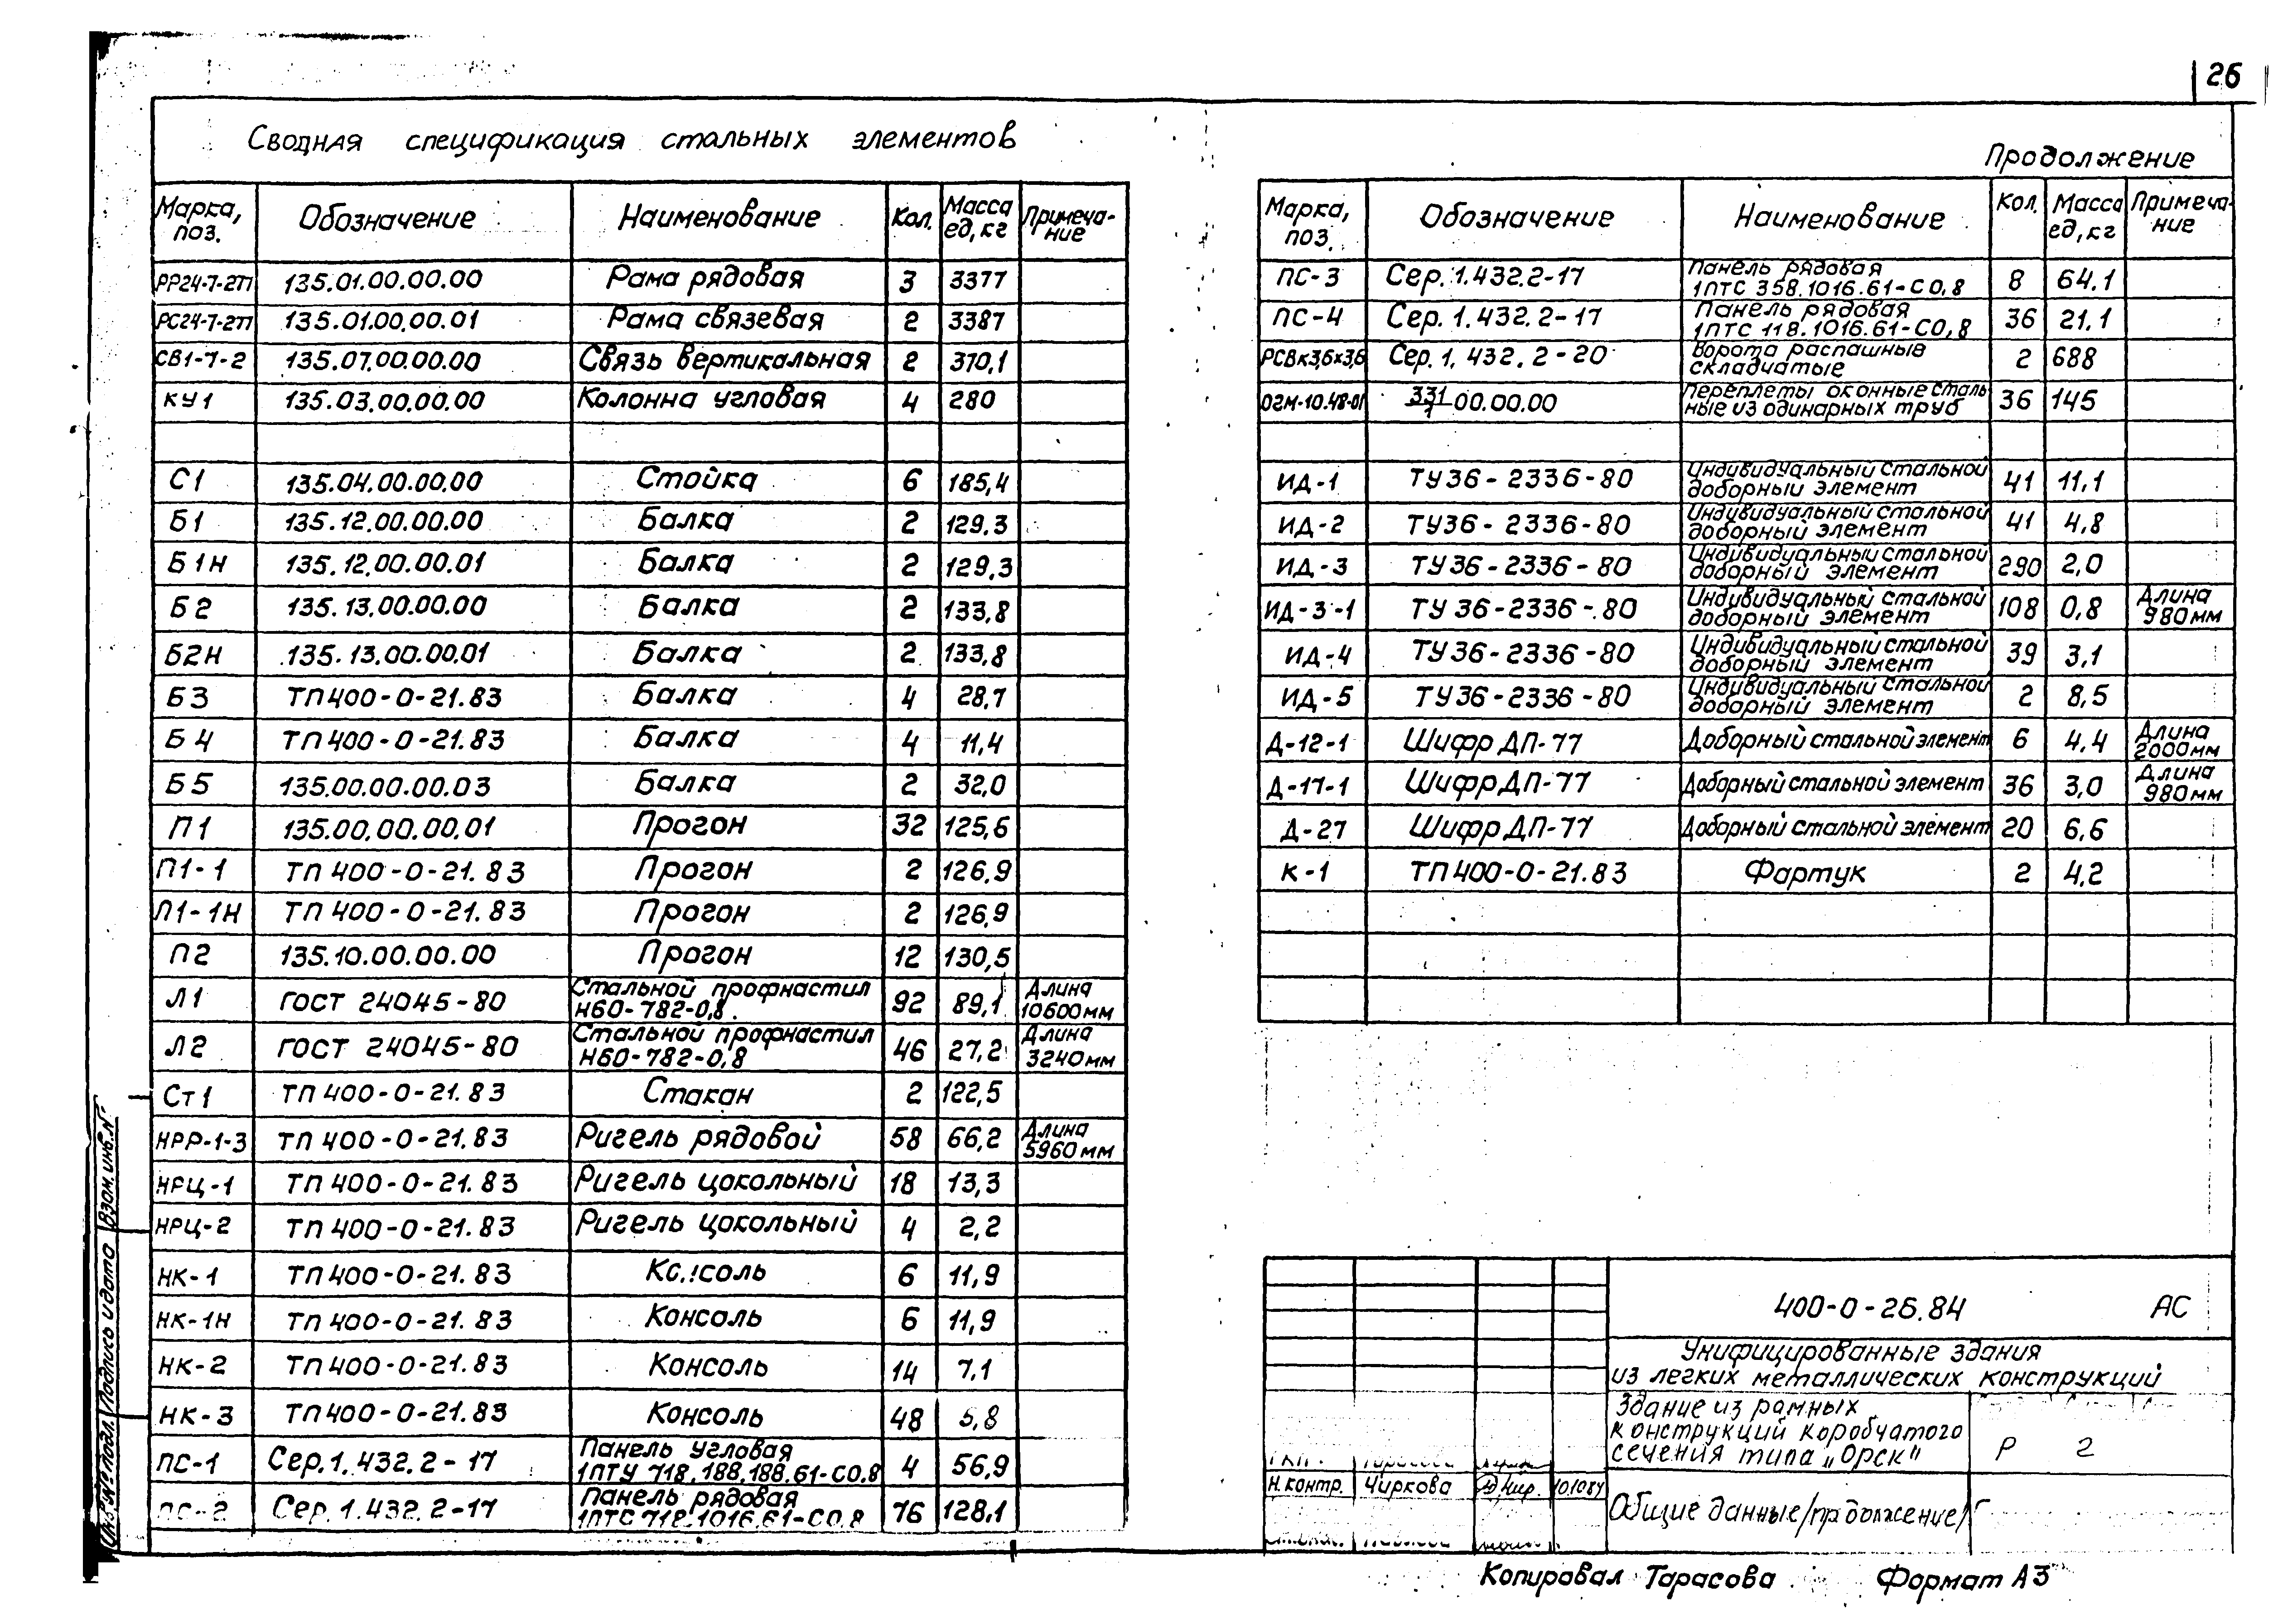 26
Сводная спецификация стальных элементов
Марка, поз. Обозначение Наименование Кол. Масса ед, кг Примеча-ние
РР24-7-277 135.01.00.00.00 Рама рядовая 3 3377
РС24-7-277 135.01.00.00.01 Рама связевая 2 3387
СВ1-7-2 135.07.00.00.00 Связь вертикальная 2 370,1
КУ1 135.03.00.00.00 Колонна угловая 4 280
С1 135.04.00.00.00 Стойка 6 185,4
Б1 135.12.00.00.00 Балка 2 129.3
Б1Н 135.12.00.00.01 Балка 2 129,3
Б2 135.13.00.00.00 Балка 2 133,8
Б2Н 135.13.00.00.01 Балка 2 133,8
Б3 ТП400-0-21.83 Балка 4 28,7
Б4 ТП400-0-21.83 Балка 4 11,4
Б5 135.00.00.00.03 Балка 2 32,0
П1 135.00.00.00.01 Прогон 32 125,6
П1-1 ТП 400-0-21.83 Прогон 2 126,9
П1-1Н ТП 400-0-21.83 Прогон 2 126,9
П2 135.10.00.00.00 Прогон 12 130,5
Л1 ГОСТ 24045-80 Стальной профнастил Н60-782-0,8. 92 89,1 Длина 10600мм
Л2 ГОСТ 24045-80 Стальной профнастил Н60-782-0,8 46 27,2 Длина 3240мм
Ст1 ТП 400-0-21.83 Стакан 2 122,5
НРР-1-3 ТП 400-0-21.83 Ригель рядовой 58 66,2 Длина 5960мм
НРЦ-1 ТП 400-0-21.83 Ригель цокольный 18 13,3
НРЦ-2 ТП 400-0-21.83 Ригель цокольный 4 2,2
НК-1 ТП400-0-21.83 Консоль 6 11,9
НК-1Н ТП 400-0-21.83 Консоль 6 11,9
НК-2 ТП400-0-21.83 Консоль 14 7,1
НК-3 ТП400-0-21.83 Консоль 48 5,8
ПС-1 Сер.1.432.2-17 Панель угловая 1ПТУ 718.188.188.61-С0.8 4 56,9
ПС-2 Сер.1.432.2-17 Панель рядовая 1ПТС 718.1016.61-С0.8 76 128,1
Продолжение
Марка, поз. Обозначение Наименование Кол. Масса ед, кг Примеча-ние
ПС-3 Сер.1.432.2-17 Панель рядовая 1ПТС 358.1016.61-С0,8 8 64.1
ПС-4 Сер.1.432.2-17 Панель рядовая 1ПТС 118.1016.61-С0,8 36 21.1
РСВк3,6х3,6 Сер.1.432.2-20 Ворота распашные складчатые 2 688
ОГМ-10.48-01 331/1 00.00.00 Переплеты оконные сталь ные из одинарных труб 36 145
ИД-1 ТУ36-2336-80 Индивидуальный стальной доборный элемент 41 11,1
ИД-2 ТУ36-2336-80 Индивидуальный стальной доборный элемент 41 4,8
ИД-3 ТУ36-2336-80 Индивидуальный стальной доборный элемент 290 2,0
ИД-3-1 ТУ 36-2336-80 Индивидуальный стальной доборный элемент 108 0,8 Длина 980мм
ИД-4 ТУ36-2336-80 Индивидуальный стальной доборный элемент 39 3,1
ИД-5 ТУ36-2336-80 Индивидуальный стальной доборный элемент 2 8,5
Д-12-1 Шифр ДП-77 Доборный стальной элемент 6 4,4 Длина 2000мм
Д-17-1 Шифр ДП-77 Доборный стальной элемент 36 3,0 Длина 980мм
Д-27 Шифр ДП-77 Доборный стальной элемент 20 6,6
К-1 ТП400-0-21.83 Фартук 2 4,2
400-0-26.84 АС
Унифицированные здания
из легких металлических конструкций
Здание из рамных
конструкций коробчатого
сечения типа „Орск"
Р 2
Н.контр. Чиркова
Общие данные/продолжение/
Копировал Тарасова Формат А3
Инв. № подл. Подпись и дата Взам. инв. №